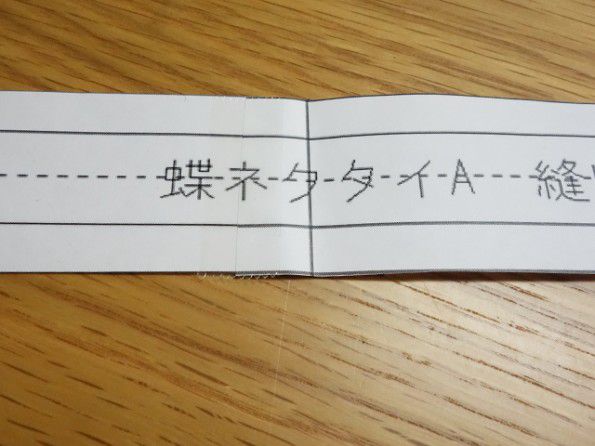 蝶ネクタイA 縫